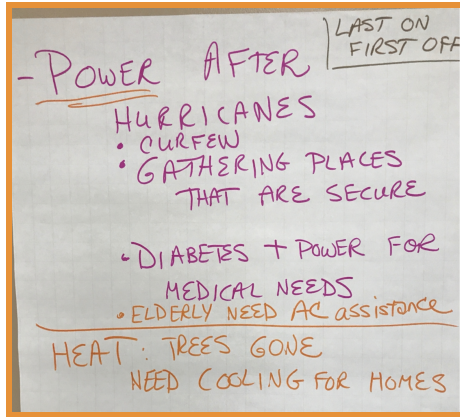 LAST ON
FIRST OFF
- POWER AFTER
HURRICANES
• CURFEW
• GATHERING PLACES
THAT ARE SECURE
• DIABETES + POWER FOR
MEDICAL NEEDS
• ELDERLY NEED AC assistance
HEAT: TREES GONE
NEED COOLING FOR HOMES